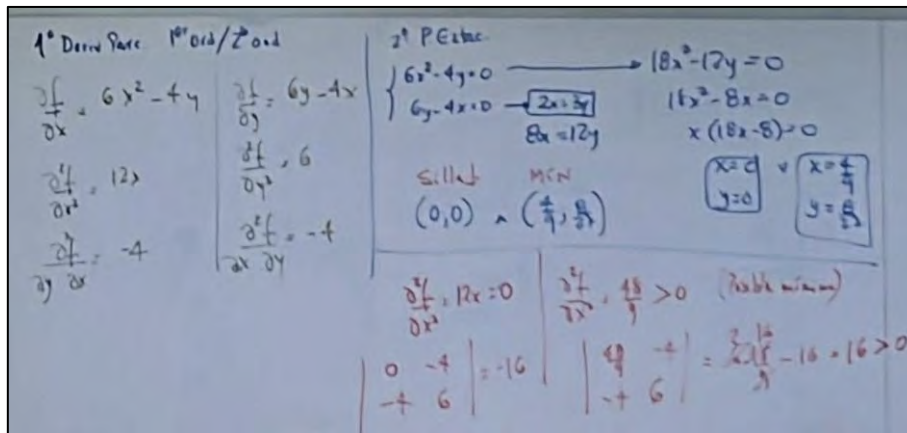 1º Deriv Parc 1er Ord/2º Ord
∂f/∂x = 6x² - 4y
∂²f/∂x² = 12x
∂²f/∂y ∂x = -4
∂f/∂y = 6y - 4x
∂²f/∂y² = 6
∂²f/∂x ∂y = -4
2º P Estac.
6x² - 4y = 0 → 18x² - 12y = 0
6y - 4x = 0 → 2x = 3y
18x² - 8x = 0
8x = 12y
x(18x - 8) = 0
x = 0
y = 0
v
x = 4/9
y = 8/27
Silla MIN
(0,0) ^ (4/9, 8/27)
∂²f/∂x² = 12x = 0
| 0 -4 |
| -4 6 | = -16
∂²f/∂x² = 48/9 > 0 (Posible mínimo)
| 48/9 -4 |
| -4 6 | = - 16 = 16 > 0